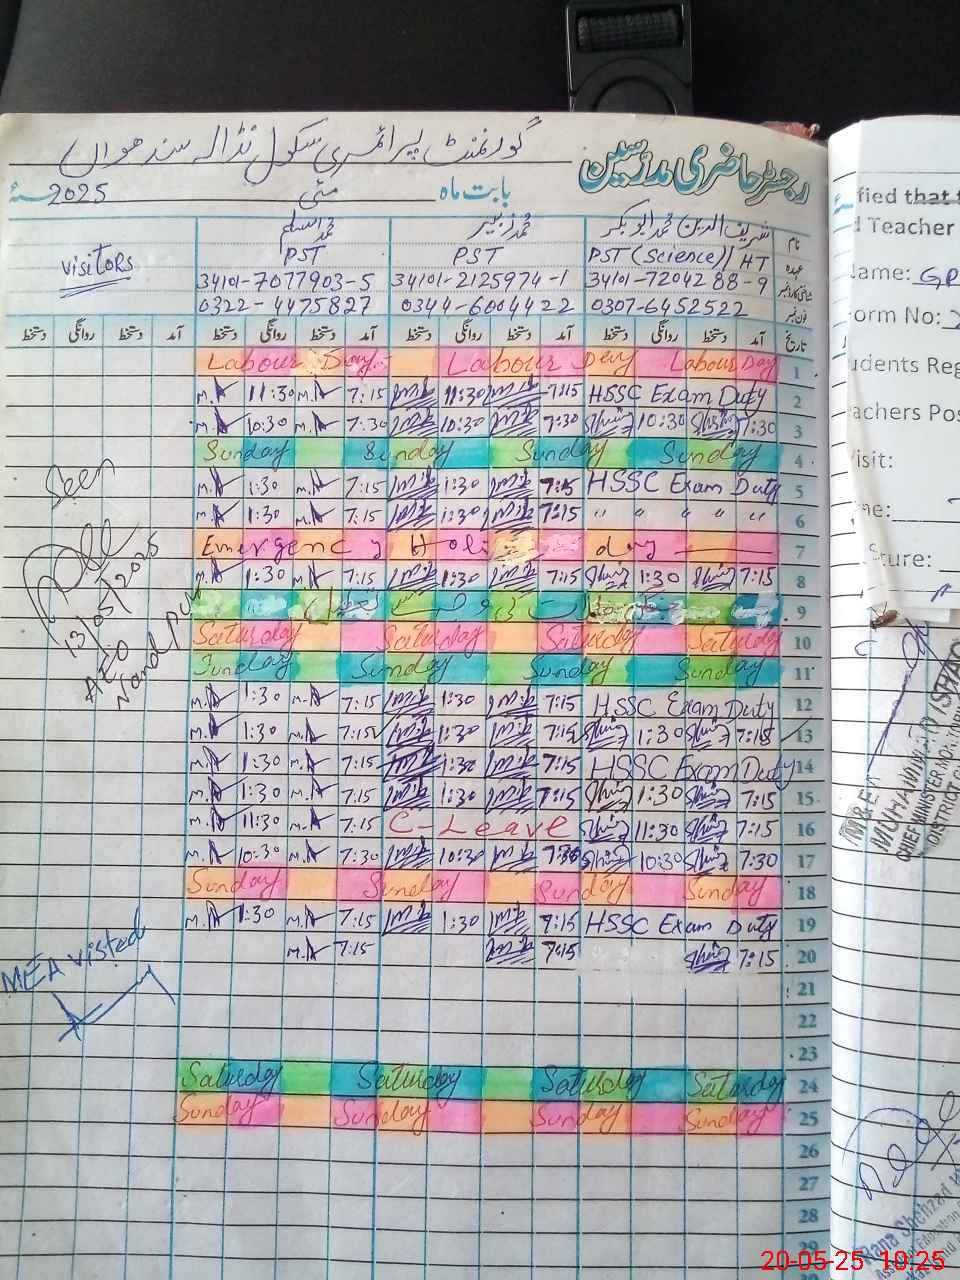 گورنمنٹ پرائمری سکول نڈالہ سندھواں
رجسٹر حاضری مدرسین
بابت ماہ مئی 2025
نام شریف الدین محمد ابوبکر محمد زبیر محمد اسلم
عہدہ PST (Science) HT PST PST visitors
34101-7204288-9 34101-2125974-1 34101-7077903-5
فون نمبر 0307-6452522 0344-6004422 0322-4475827
تاریخ آمد دستخط روانگی دستخط آمد دستخط روانگی دستخط آمد دستخط روانگی دستخط آمد دستخط روانگی دستخط
Labour Day Labour Day Labour Day 1
M.A 11:30 M.A 7:15 11:30 7:15 HSSC Exam Duty 2
M.A 10:30 M.A 7:30 10:30 7:30 10:30 7:30 3
Sunday Sunday Sunday Sunday 4
M.A 1:30 M.A 7:15 1:30 7:15 HSSC Exam Duty 5
M.A 1:30 M.A 7:15 1:30 7:15 " " " " " 6
Emergency Holiday 7
M.A 1:30 M.A 7:15 1:30 7:15 1:30 7:15 8
9
Saturday Saturday Saturday Saturday 10
Sunday Sunday Sunday Sunday 11
M.A 1:30 M.A 7:15 1:30 7:15 HSSC Exam Duty 12
M.A 1:30 M.A 7:15 1:30 7:15 1:30 7:15 13
M.A 1:30 M.A 7:15 1:30 7:15 HSSC Exam Duty 14
M.A 1:30 M.A 7:15 1:30 7:15 1:30 7:15 15
M.A 11:30 M.A 7:15 C-Leave 11:30 7:15 16
M.A 10:30 M.A 7:30 10:30 7:30 10:30 7:30 17
Sunday Sunday Sunday Sunday 18
M.A 1:30 M.A 7:15 1:30 7:15 HSSC Exam Duty 19
M.A 7:15 7:15 7:15 20
21
22
23
Saturday Saturday Saturday Saturday 24
Sunday Sunday Sunday Sunday 25
26
27
28
29
Seen
13/05/2025
AEO
Nandpur
MEA visted
fied that
Teacher
Name: GP
orm No:
udents Reg
achers Pos
isit:
me:
ture:
M&E
MUHAMMAD ISHAQ
CHIEF MINISTER MONITORING
DISTRICT
Rana Shehzad
20-05-25 10:25